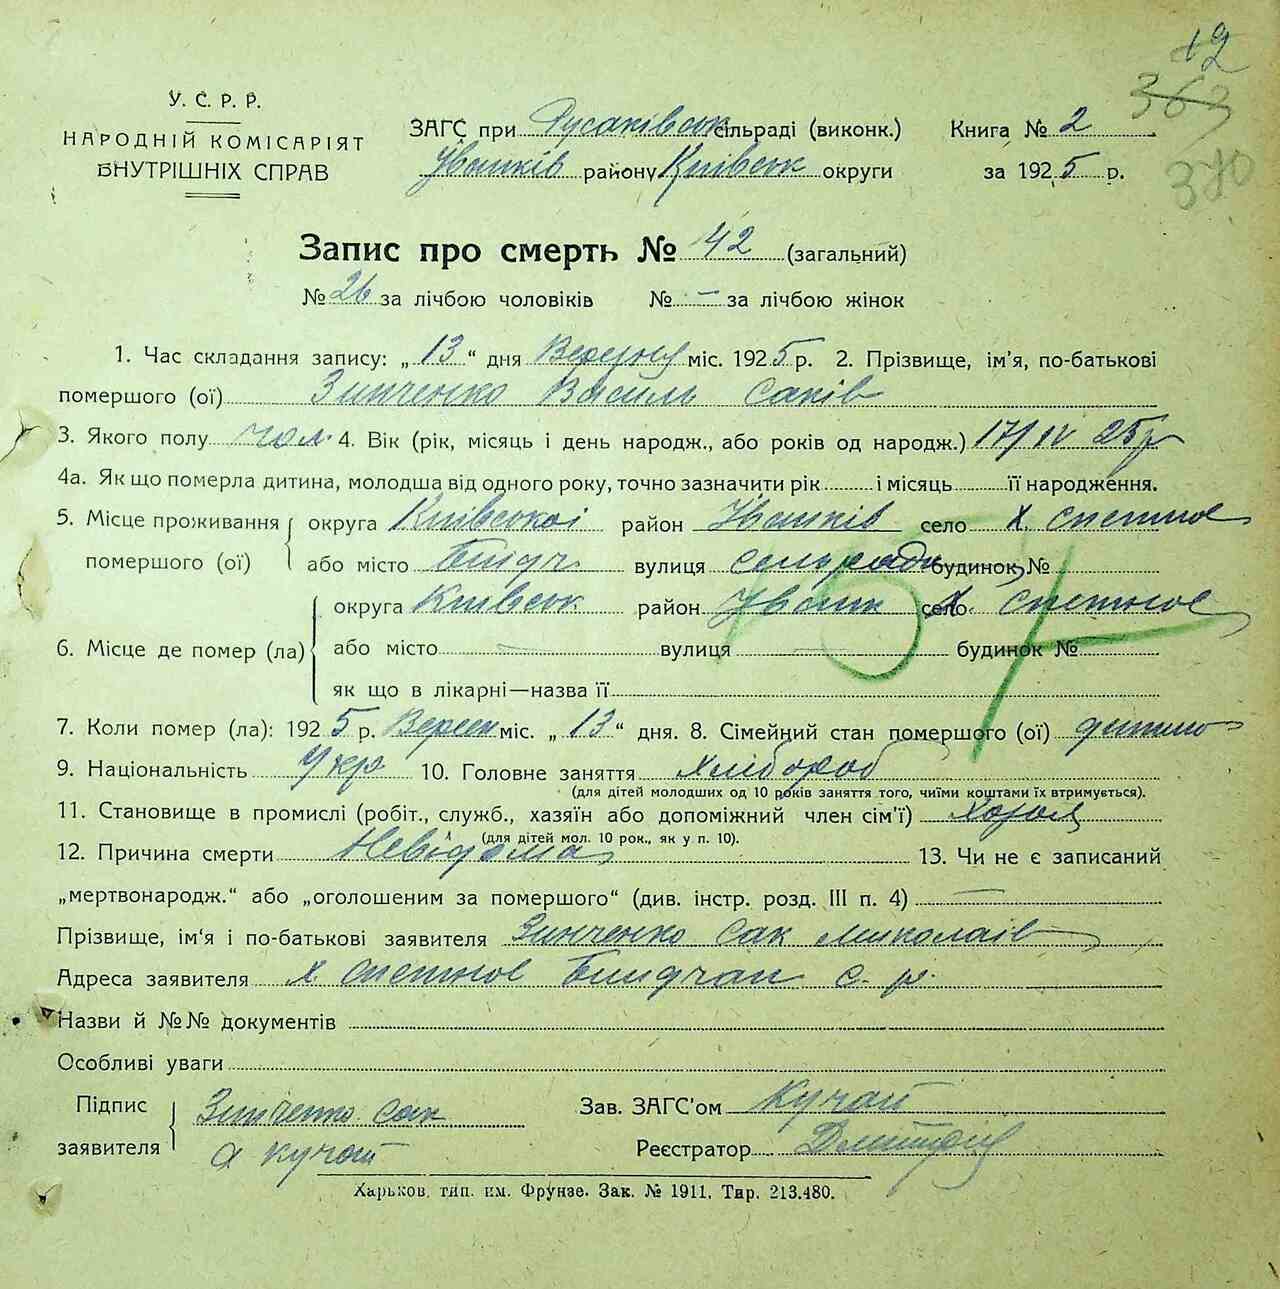 12
363
370
У. С. Р. Р.
НАРОДНІЙ КОМІСАРІЯТ
ВНУТРІШНІХ СПРАВ
ЗАГС при Русаківськ сільраді (виконк.) Книга № 2
Іваньків району Київськ округи за 1925 р.
Запис про смерть № 42 (загальний)
№ 26 за лічбою чоловіків № – за лічбою жінок
1. Час складання запису: „13“ дня міс. 1925 р. 2. Прізвище, ім'я, по-батькові
помершого (ої) Зинченко Василь Саків
3. Якого полу чол. 4. Вік (рік, місяць і день народж., або років од народж.) 17/IV 25р
4а. Як що померла дитина, молодша від одного року, точно зазначити рік і місяць її народження.
5. Місце проживання округа Київської район Іваньків село х.
помершого (ої) або місто вулиця сельради будинок №
округа Київськ район село х.
6. Місце де помер (ла) або місто вулиця будинок №
як що в лікарні—назва її
7. Коли помер (ла): 1925 р. Вересн міс. „13“ дня. 8. Сімейний стан помершого (ої) дитина
9. Національність Укр 10. Головне заняття Хлібороб
(для дітей молодших од 10 років заняття того, чиїми коштами їх втримується).
11. Становище в промислі (робіт., служб., хазяїн або допоміжний член сім'ї)
(для дітей мол. 10 рок., як у п. 10).
12. Причина смерти Невідома 13. Чи не є записаний
„мертвонародж.“ або „оголошеним за помершого“ (див. інстр. розд. III п. 4) —
Прізвище, ім'я і по-батькові заявителя Зинченко Сак Миколаїв
Адреса заявителя х с. р.
Назви й №№ документів
Особливі уваги
Підпис заявителя Зинченко Сак
а Кучай
Зав. ЗАГС'ом Кучай
Реєстратор
Харьков, тип. им. Фрунзе. Зак. № 1911. Тир. 213.480.